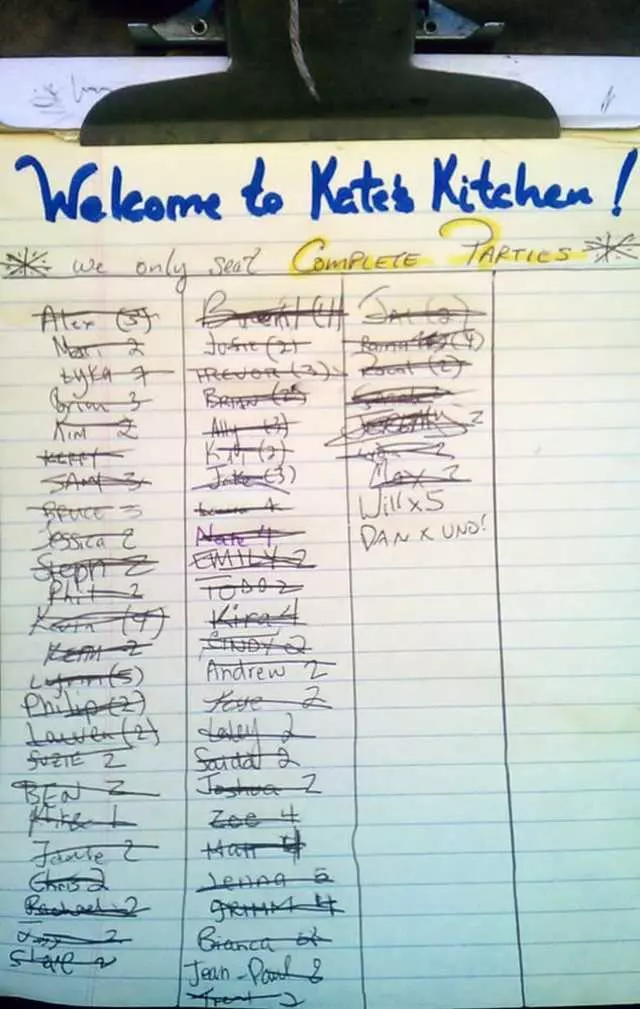 Welcome to Kate's Kitchen!
we only seat COMPLETE PARTIES
Alex (5)
Mari 2
Lyka 7
Brian 3
Kim 2
KERRY
SAM 3
BRUCE 3
Jessica 2
Steph 2
Phil 2
Kevin (4)
KEITH 2
(5)
Philip (2)
Lauren (2)
SUZIE 2
BEN 2
Mike 1
Jamie 2
Chris 2
Rachael 2
2
Steve 2
Josie (2)
TREVOR (3)
BRIAN (2)
Ally (3)
(2)
Jake (3)
4
Nate 4
EMILY 2
TODD 2
Kira 4
CINDY 2
Andrew 2
2
Laley 2
Saida 2
Joshua 2
Zoe 4
Matt 4
Jenna
GRIMM 4
Bianca
Jean-Paul 2
Trent 2
(2)
(4)
(2)
JEREMY 2
2
Max 2
Will x 5
DAN X UNO!